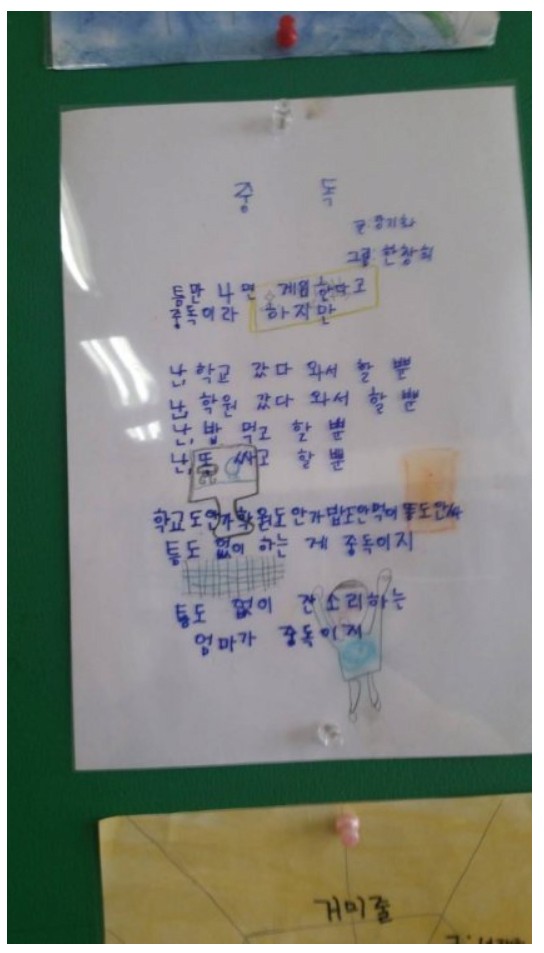 중 독
그림: 한창희
틈만 나면 게임한다고
중독이라 하지만
난, 학교 갔다 와서 할 뿐
난, 학원 갔다 와서 할 뿐
난, 밥 먹고 할 뿐
난, 똥 싸고 할 뿐
학교도안가학원도안가밥도안먹어똥도안싸
틈도 없이 하는 게 중독이지
틈도 없이 잔소리하는
엄마가 중독이지
거미줄